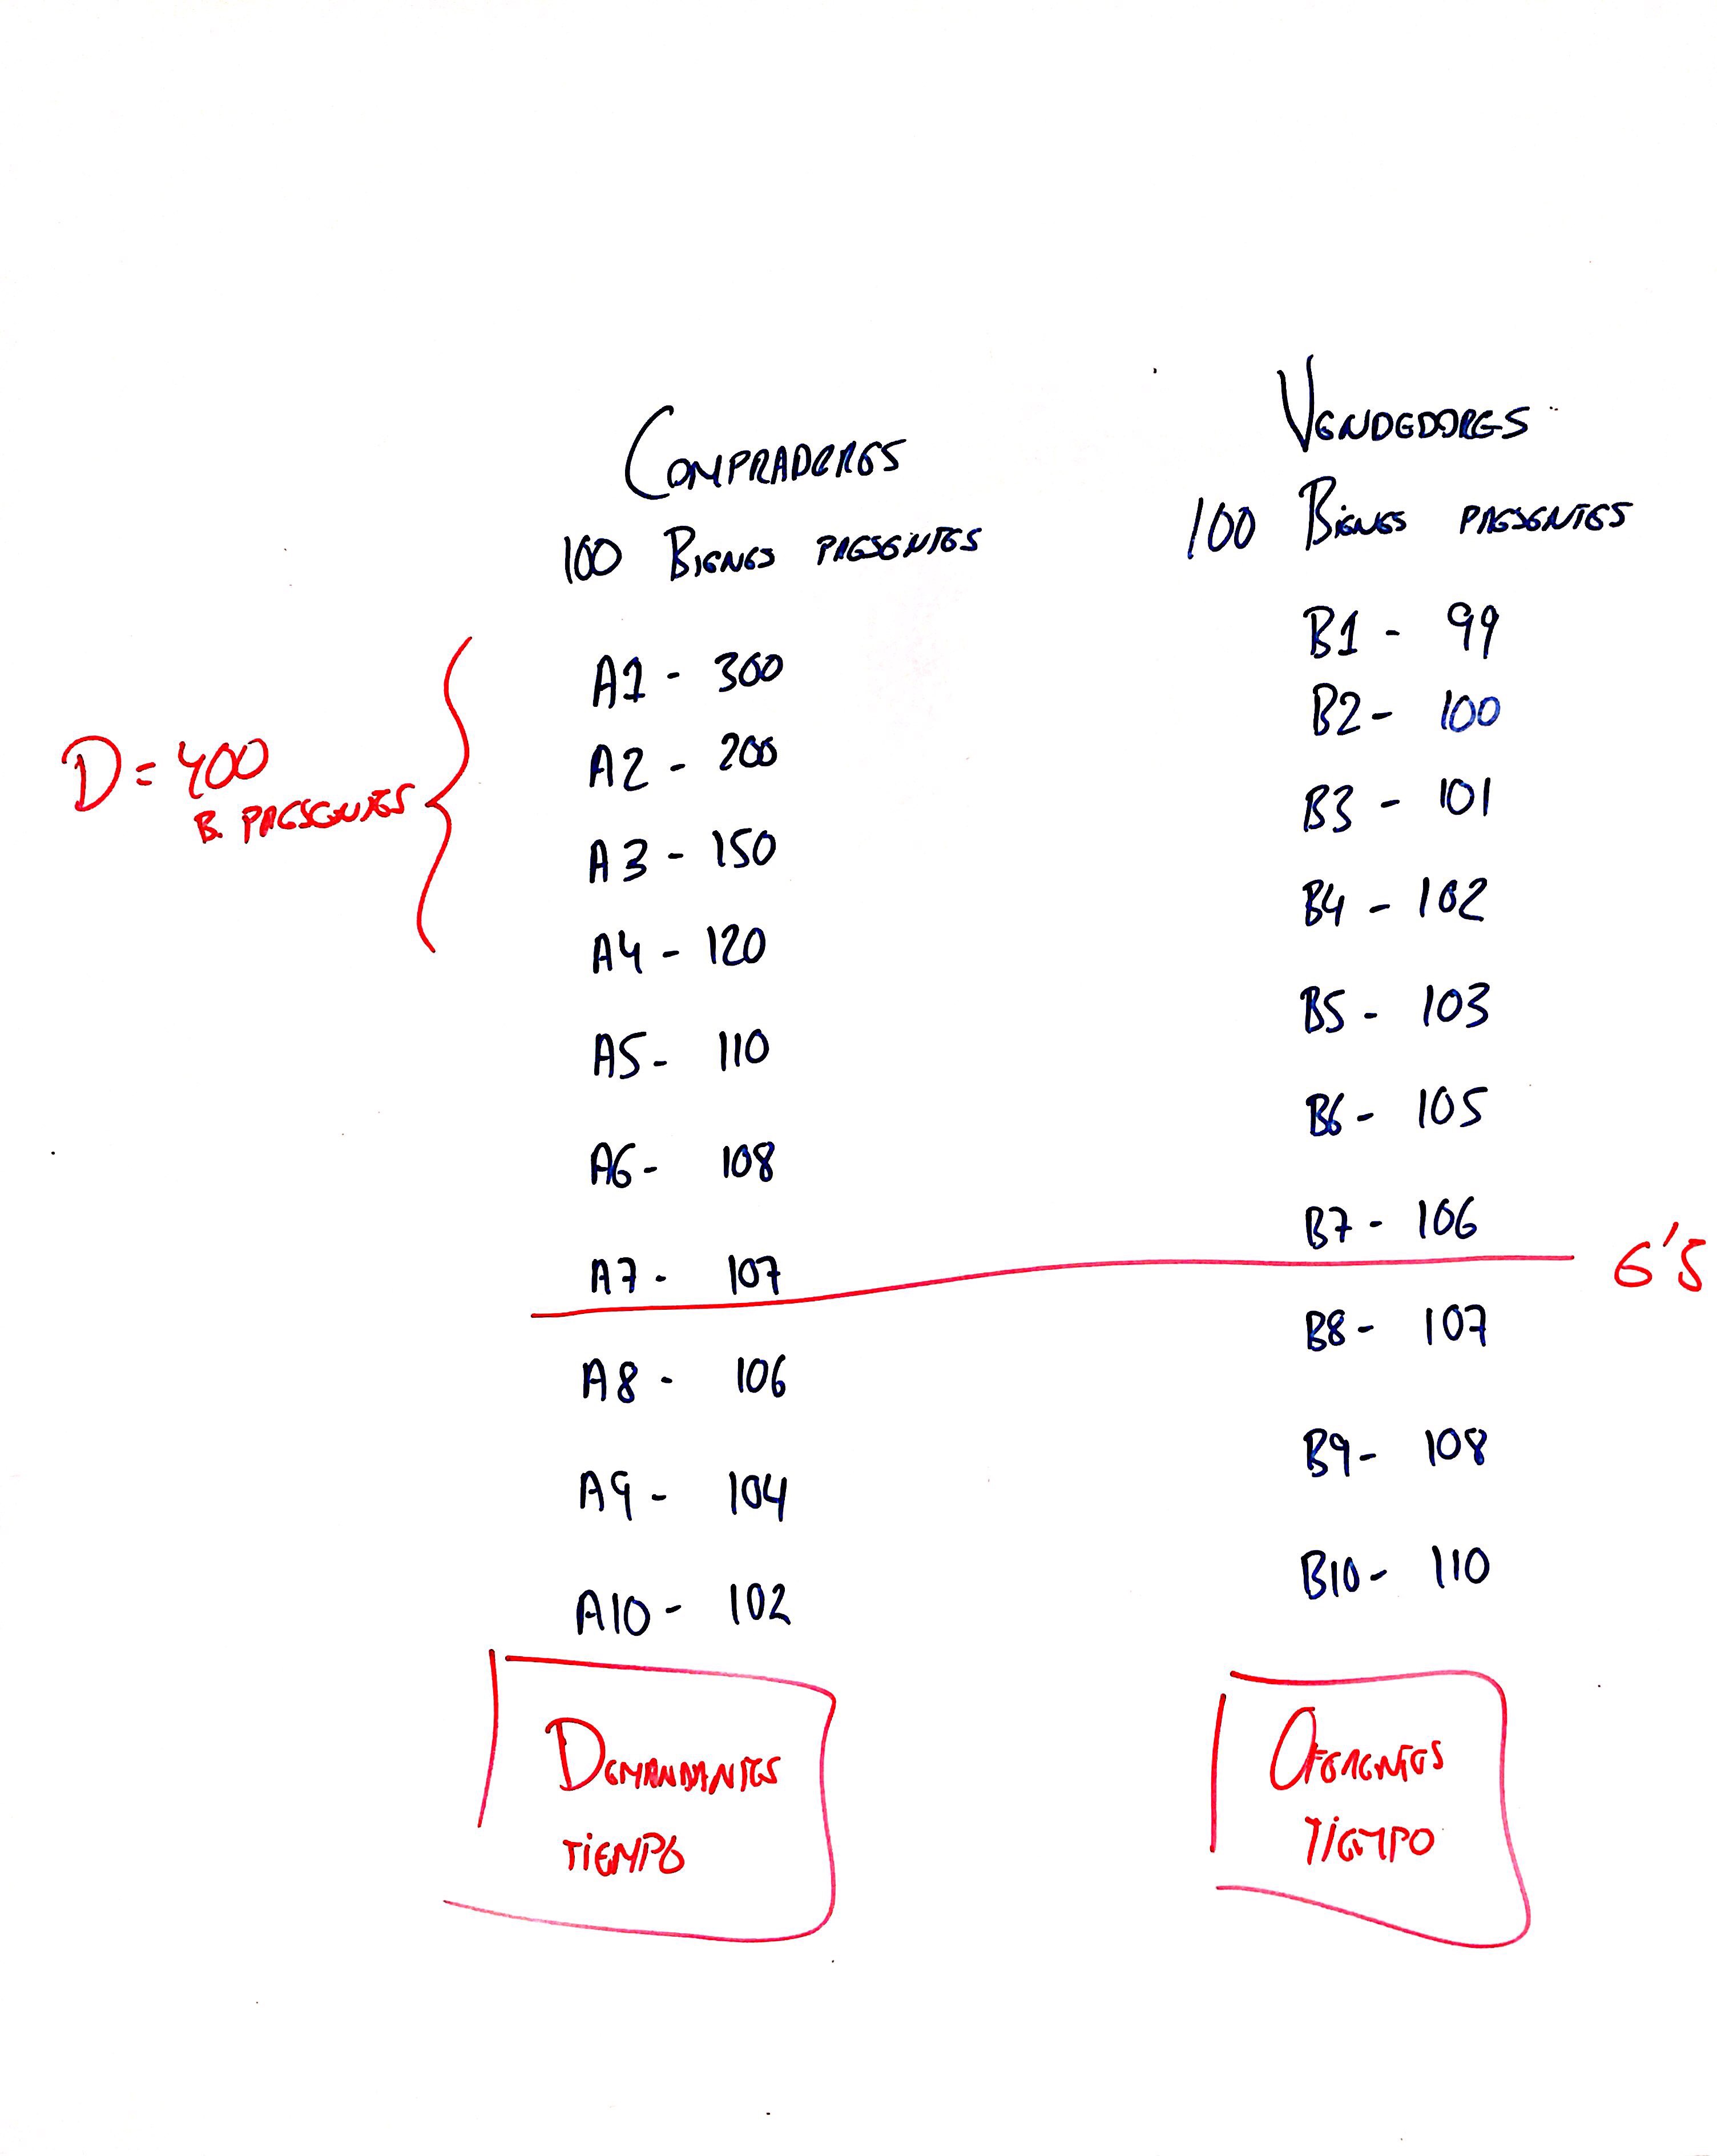 COMPRADORES
100 BIENES PRESENTES
A1 - 300
A2 - 200
A3 - 150
A4 - 120
A5 - 110
A6 - 108
A7 - 107
A8 - 106
A9 - 104
A10 - 102
DEMANDANTES
TIEMPO
D = 400
B. PRESENTES
VENDEDORES
100 BIENES PRESENTES
B1 - 99
B2 - 100
B3 - 101
B4 - 102
B5 - 103
B6 - 105
B7 - 106
B8 - 107
B9 - 108
B10 - 110
OFERENTES
TIEMPO
6'5